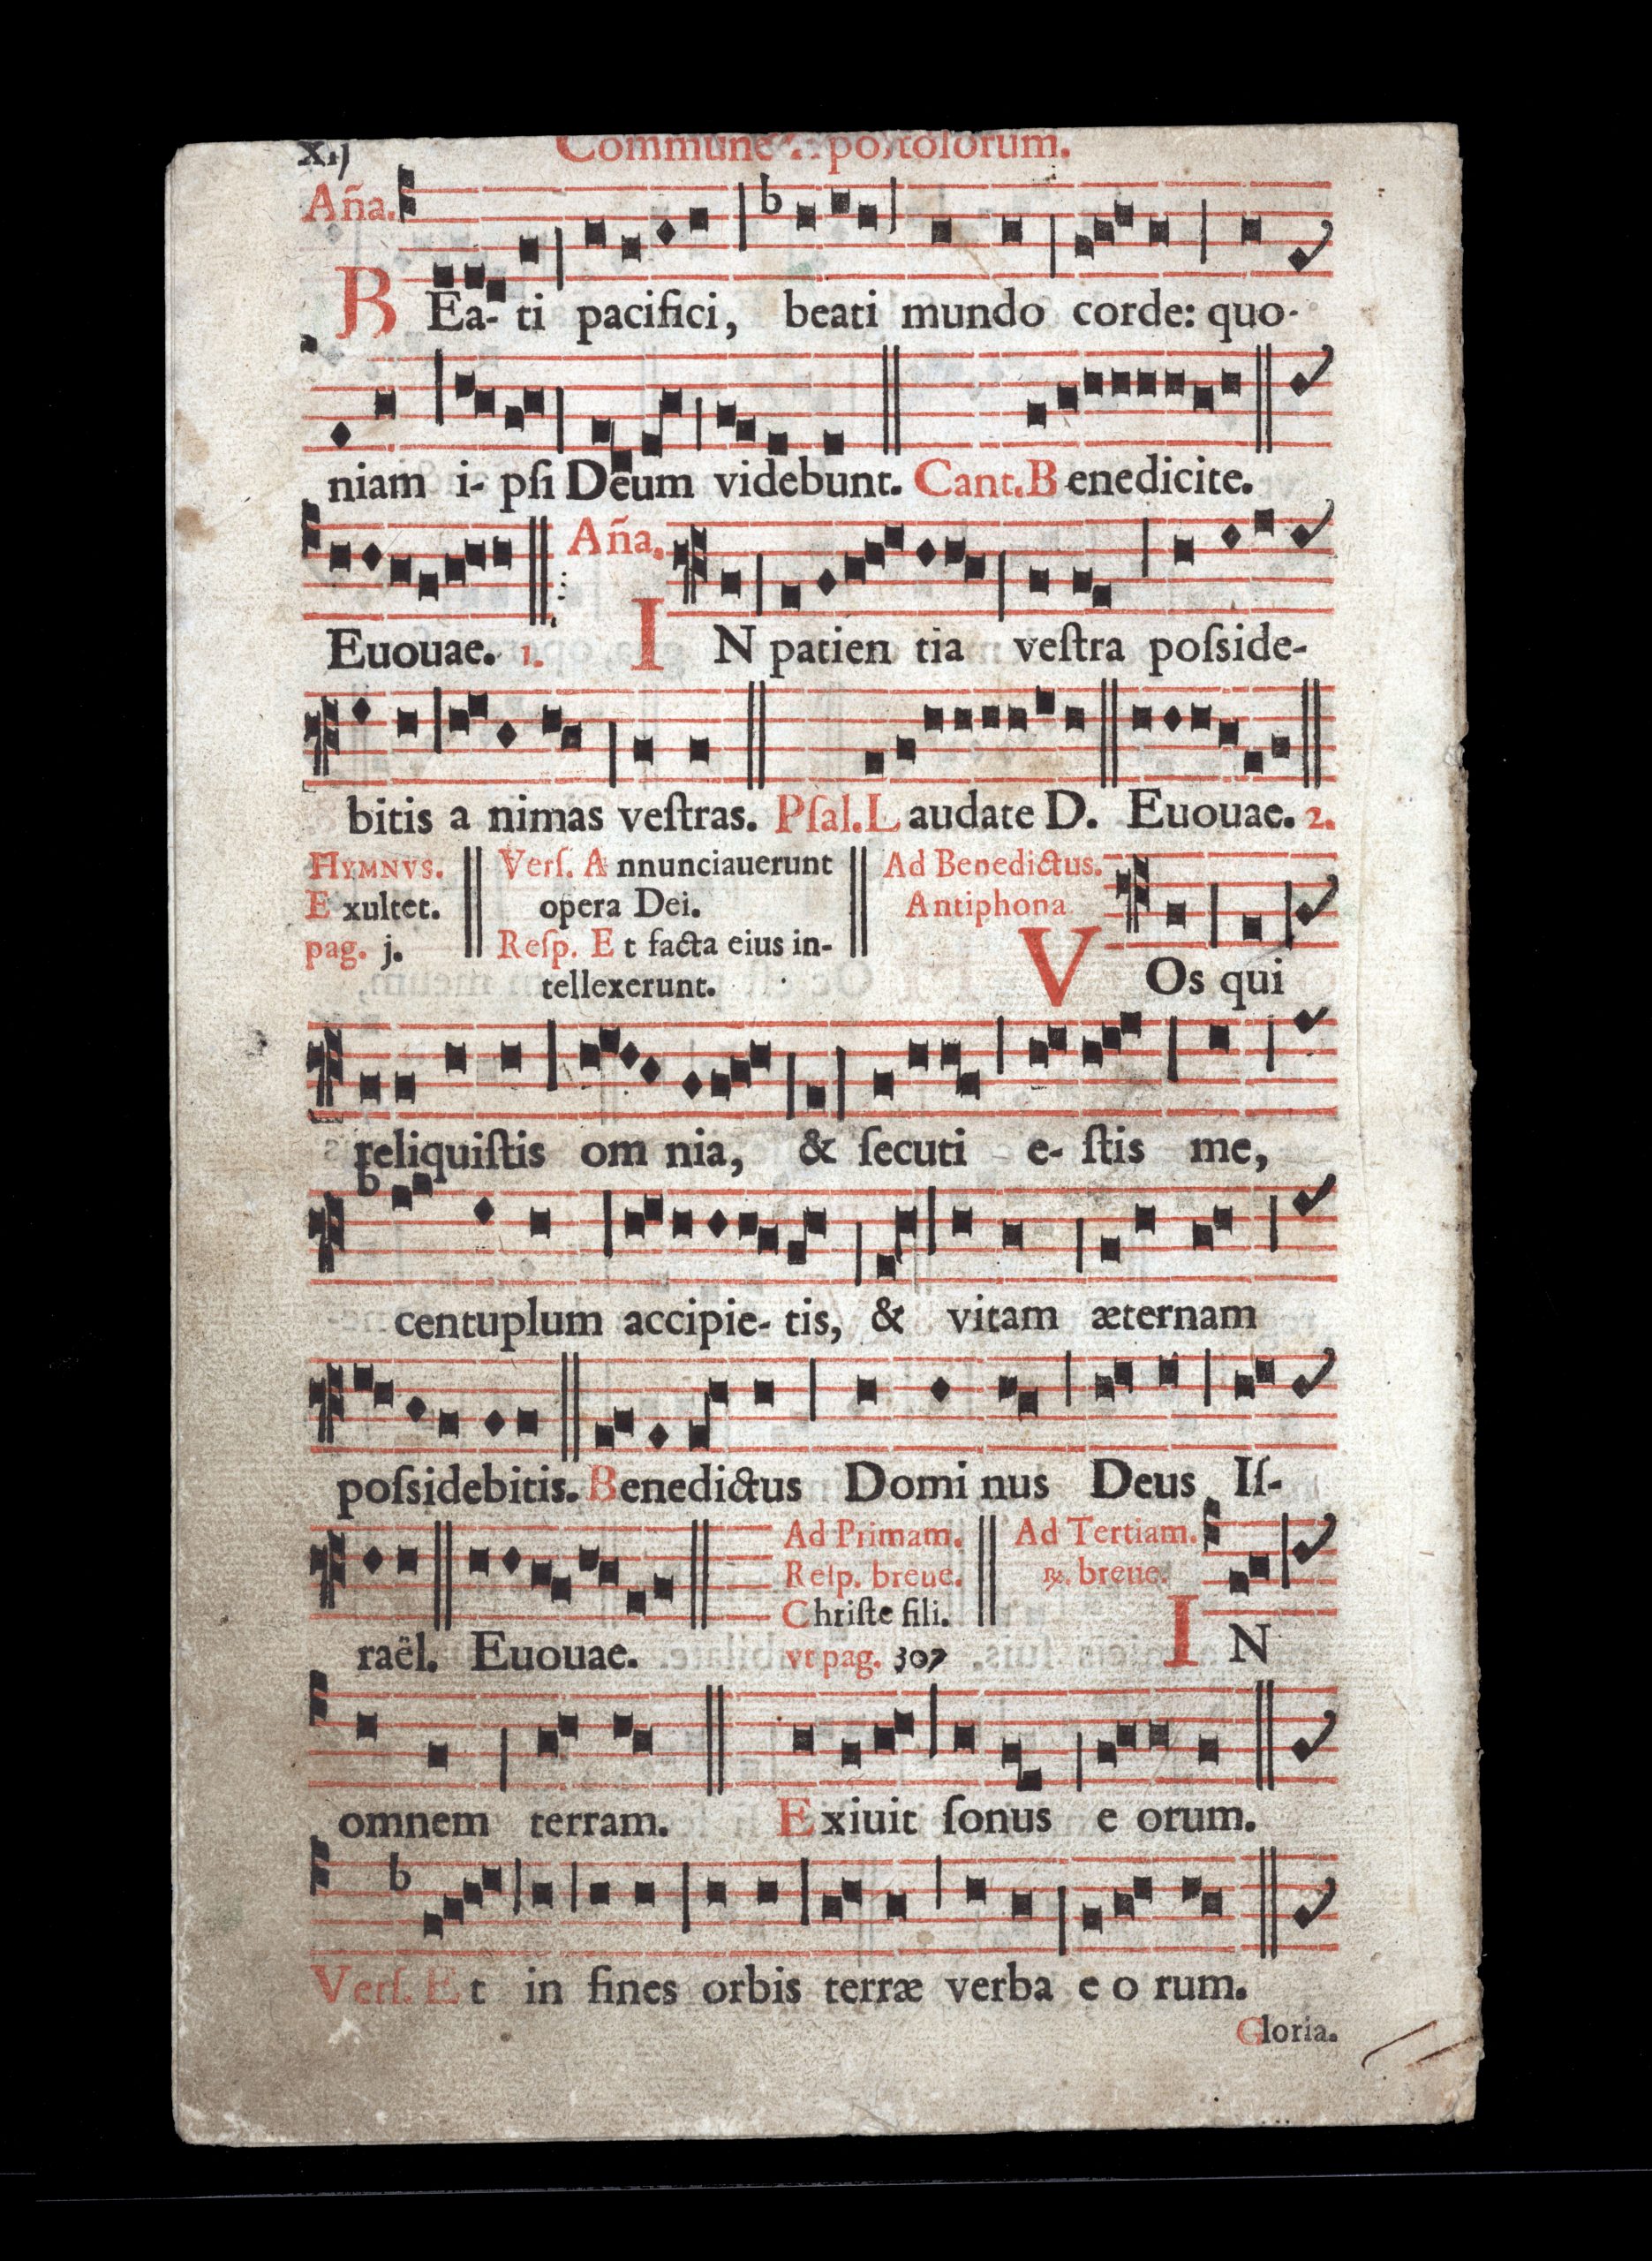 xij Commune Apostolorum.
Aña.
BEa- ti pacifici, beati mundo corde: quo-
niam i- pſi Deum videbunt. Cant. Benedicite.
Aña.
Euouae. 1. IN patien tia veſtra poſside-
bitis a nimas veſtras. Pſal. Laudate D. Euouae. 2.
HYMNVS. Verſ. Annunciauerunt Ad Benedictus.
Exultet. opera Dei. Antiphona
pag. j. Reſp. Et facta eius in-
tellexerunt. VOs qui
reliquiſtis om nia, & ſecuti e- ſtis me,
centuplum accipie- tis, & vitam æternam
poſsidebitis. Benedictus Domi nus Deus Iſ-
Ad Primam. Ad Tertiam.
Reſp. breue. ℟. breue.
Chriſte fili.
raël. Euouae. vt pag. 307 IN
omnem terram. Exiuit ſonus e orum.
Verſ. Et in fines orbis terræ verba e o rum.
Gloria.